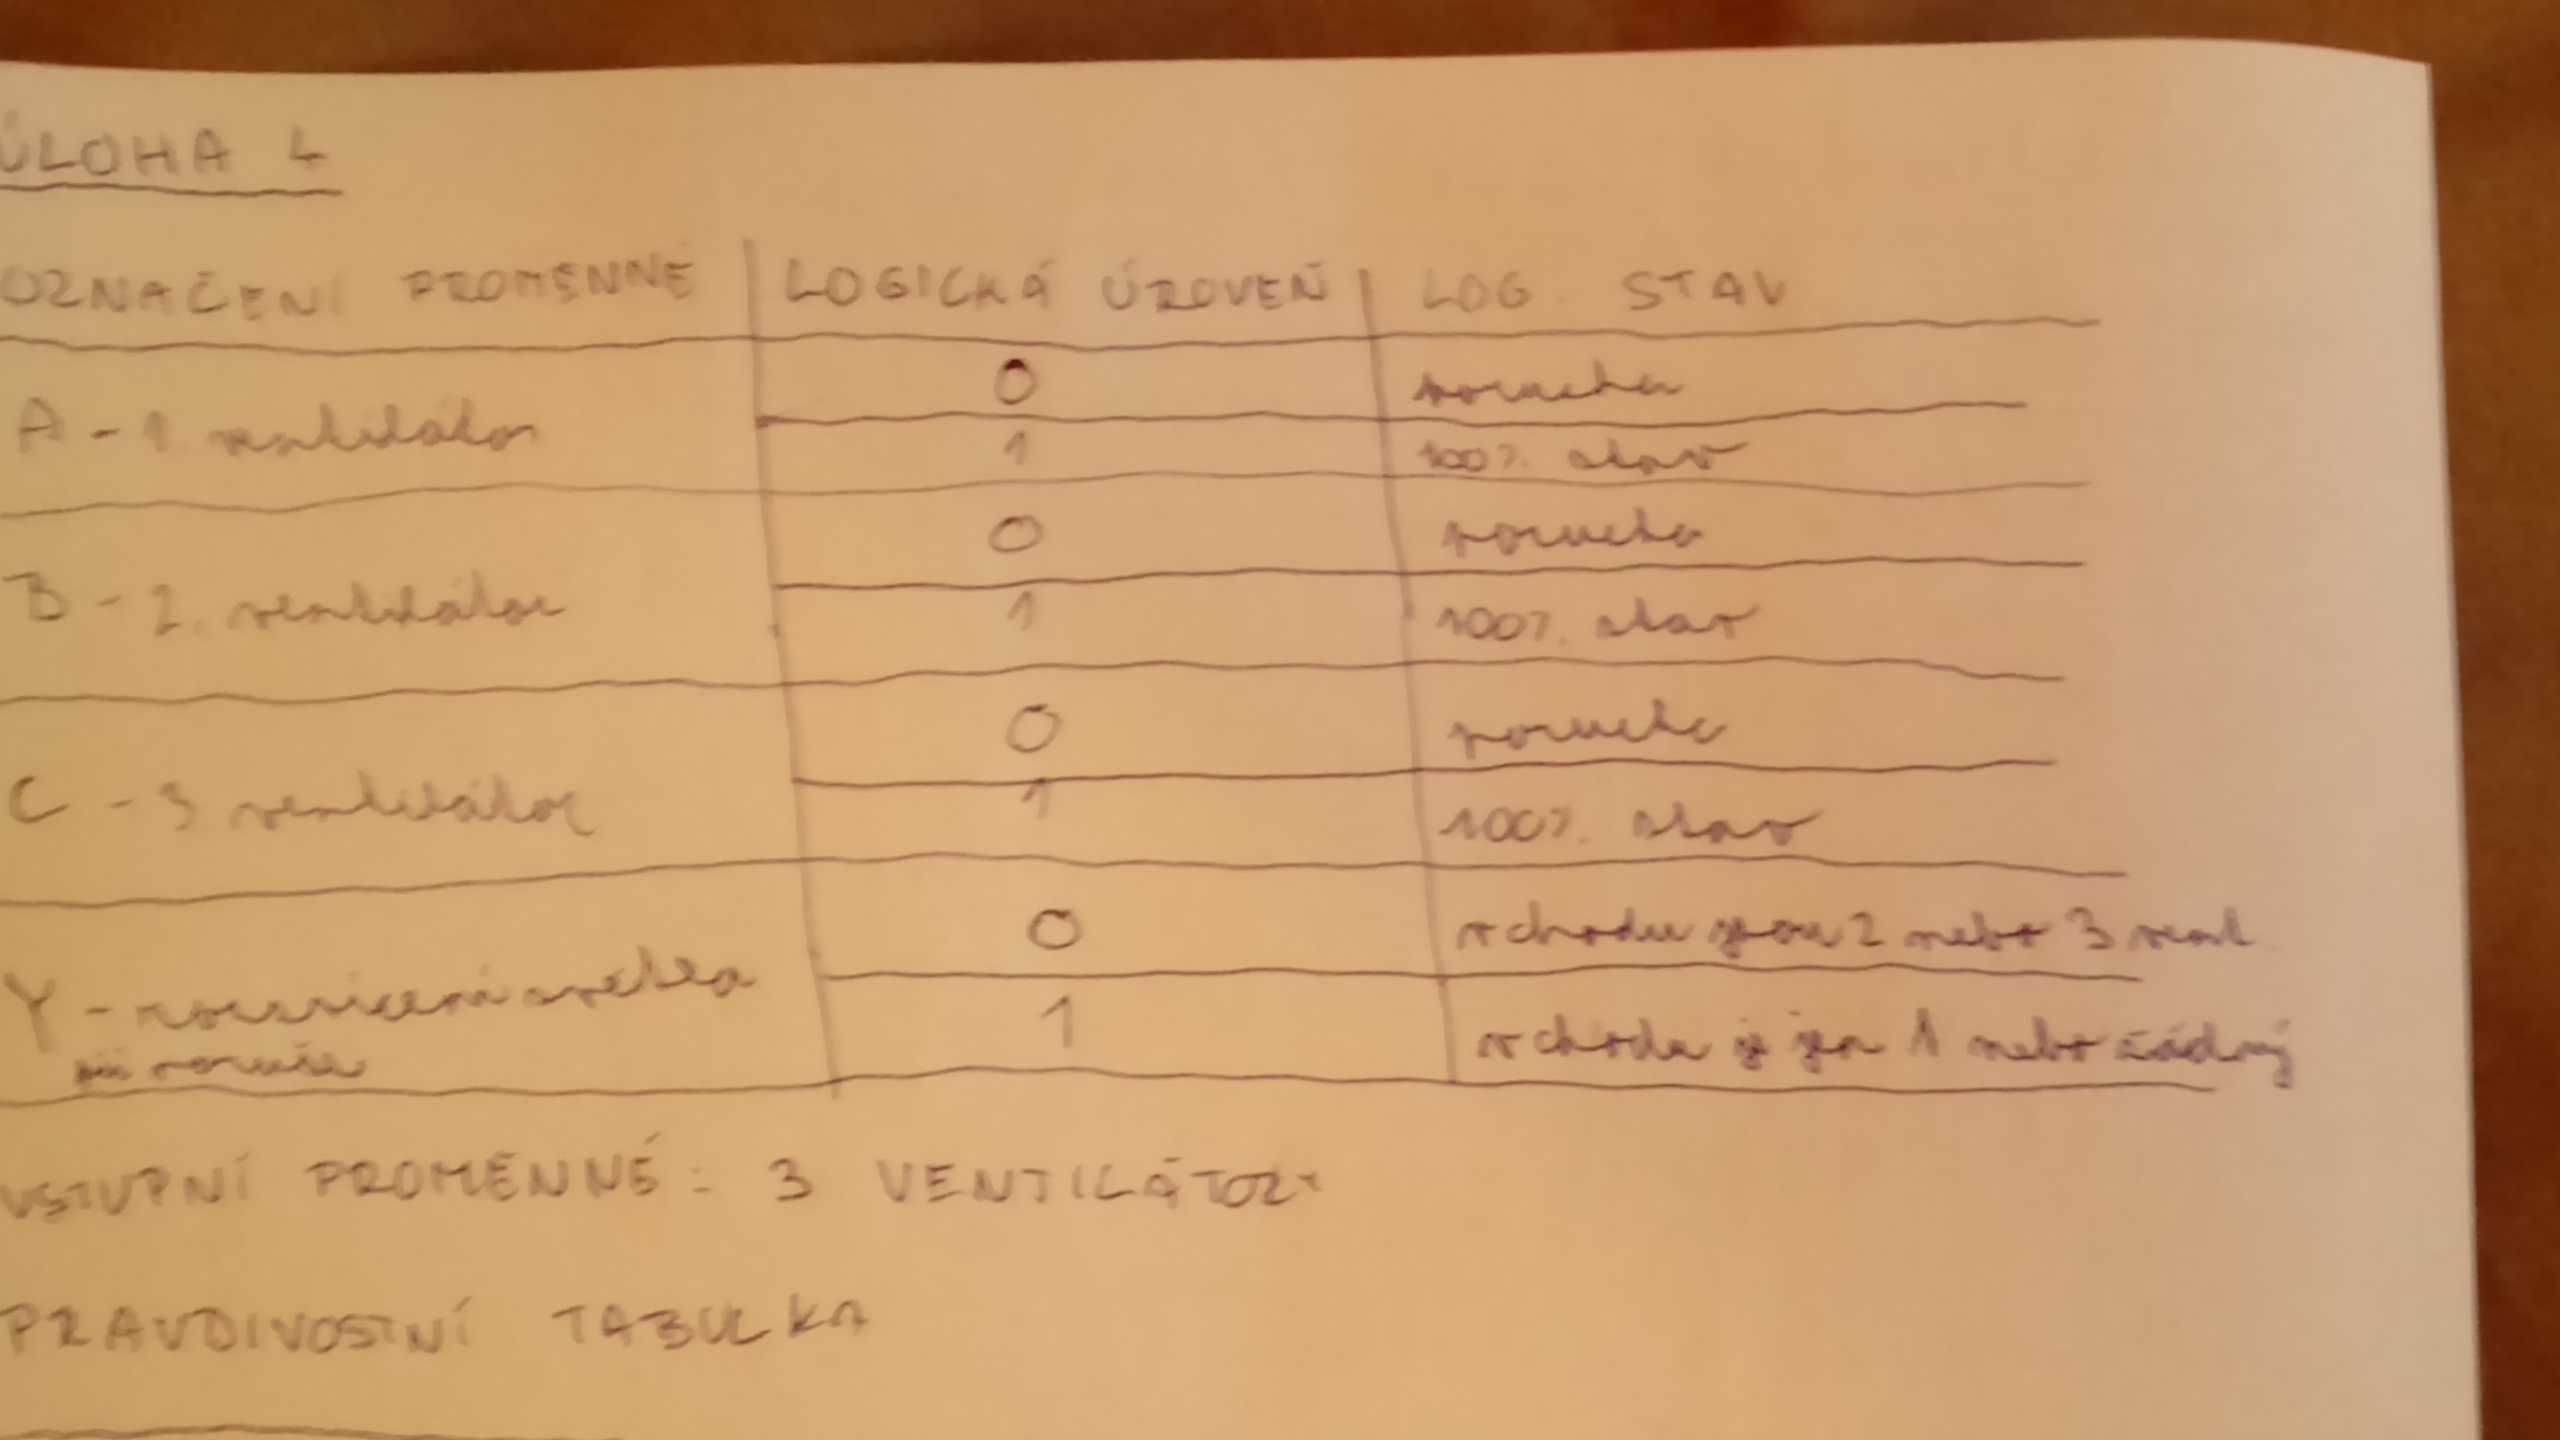 ÚLOHA 4
OZNAČENÍ PROMĚNNÉ LOGICKÁ ÚROVEŇ LOG. STAV
A - 1. ventilátor 0 porucha
1 100% stav
B - 2. ventilátor 0 porucha
1 100% stav
C - 3 ventilátor 0 porucha
1 100% stav
Y - rozsvícení světla při poruše 0 v chodu jsou 2 nebo 3 vent
1 v chodu je jen 1 nebo žádný
VSTUPNÍ PROMĚNNÉ: 3 VENTILÁTORY
PRAVDIVOSTNÍ TABULKA